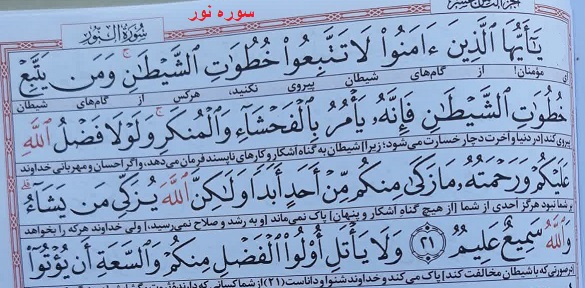 سوره نور
سُورَةُ النُّور
يَـٰٓأَيُّهَا الَّذِينَ ءَامَنُوا لَا تَتَّبِعُوا خُطُوَٰتِ الشَّيْطَـٰنِ وَمَن يَتَّبِعْ
ای مؤمنان! از گام‌های شیطان پیروی نکنید، هرکس از گام‌های شیطان
خُطُوَٰتِ الشَّيْطَـٰنِ فَإِنَّهُۥ يَأْمُرُ بِالْفَحْشَآءِ وَالْمُنكَرِ وَلَوْلَا فَضْلُ اللَّهِ
پیروی کند [در دنیا و آخرت دچار خسارت می‌شود؛ زیرا] شیطان به گناه آشکار و کارهای ناپسند فرمان می‌دهد، و اگر احسان و مهربانی خداوند
عَلَيْكُمْ وَرَحْمَتُهُۥ مَا زَكَىٰ مِنكُم مِّنْ أَحَدٍ أَبَدًا وَلَـٰكِنَّ اللَّهَ يُزَكِّى مَن يَشَآءُ
بر شما نبود هرگز احدی از شما [از هیچ گناهِ آشکار و پنهان] پاک نمی‌ماند [و به رشد و صلاح نمی‌رسید] ولی خداوند هرکه را بخواهد
وَاللَّهُ سَمِيعٌ عَلِيمٌ ﴿٢١﴾ وَلَا يَأْتَلِ أُو۟لُوا الْفَضْلِ مِنكُمْ وَالسَّعَةِ أَن يُؤْتُوٓا
[درصورتی که با شیطان مخالفت کند] پاک می‌کند و خداوند شنوا و داناست (۲۱) از شما کسانی که دارنده